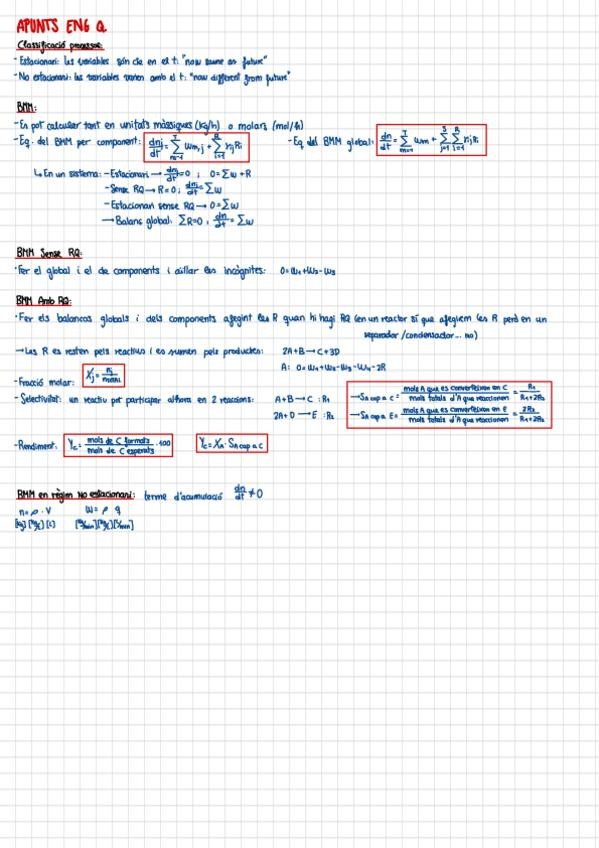 APUNTS ENG Q.
Classificació processos:
- Estacionari: les variables són cte en el t: "now same as future"
- No estacionari: les variables varien amb el t: "now different from future"
BMM:
- Es pot calcular tant en unitats màssiques (kg/h) o molars (mol/h)
- Eq. del BMM per component: dnj/dt = Σ(m=1→T) wm,j + Σ(i=1→R) rij Ri - Eq del BMM global: dn/dt = Σ(m=1→T) wm + Σ(j=1→S) Σ(i=1→R) rij Ri
↳ En un sistema: - Estacionari → dnj/dt = 0 ; 0 = Σw + R
- Sense RQ → R = 0 ; dnj/dt = Σw
- Estacionari sense RQ → 0 = Σw
→ Balans global: ΣR=0 ; dn/dt = Σw
BMM Sense RQ:
· Fer el global i el de components i aïllar les incògnites: 0 = w1 + w2 - w3
BMM Amb RQ:
· Fer els balancos globals i dels components afegint les R quan hi hagi RQ (en un reactor sí que afegiem les R però en un
separador /condensador... no)
→ Las R es resten pels reactius i es sumen pels productes: 2A+B → C+3D
A: 0 = w1 + w2 - w3 - w4 - 2R
- Fracció molar: Xj = nj/ntotal
- Selectivitat: un reactiu pot participar alhora en 2 reaccions: A+B → C : R1 → SA cap a C = mols A que es converteixen en C / mols totals d'A que reaccionen = R1/(R1+2R2)
2A+D → E : R2 → SA cap a E = mols A que es converteixen en E / mols totals d'A que reaccionen = 2R2/(R1+2R2)
- Rendiment: Yc = mols de C formats / mols de C esperats · 100 Yc = XA · SA cap a C
BMM en règim No estacionari: terme d'acumulació dn/dt ≠ 0
n = ρ · V w = ρ q